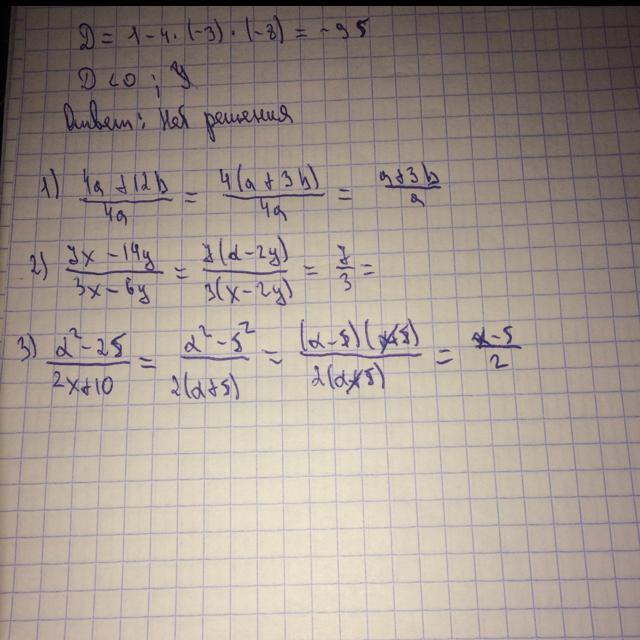 D = 1 - 4 · (-3) · (-8) = -95
D < 0 ;
Ответ: Нет решения
1) 4a + 12b / 4a = 4(a + 3b) / 4a = a + 3b / a
2) 7x - 14y / 3x - 6y = 7(x - 2y) / 3(x - 2y) = 7 / 3 =
3) x² - 25 / 2x + 10 = x² - 5² / 2(x + 5) = (x - 5)(x + 5) / 2(x + 5) = x - 5 / 2